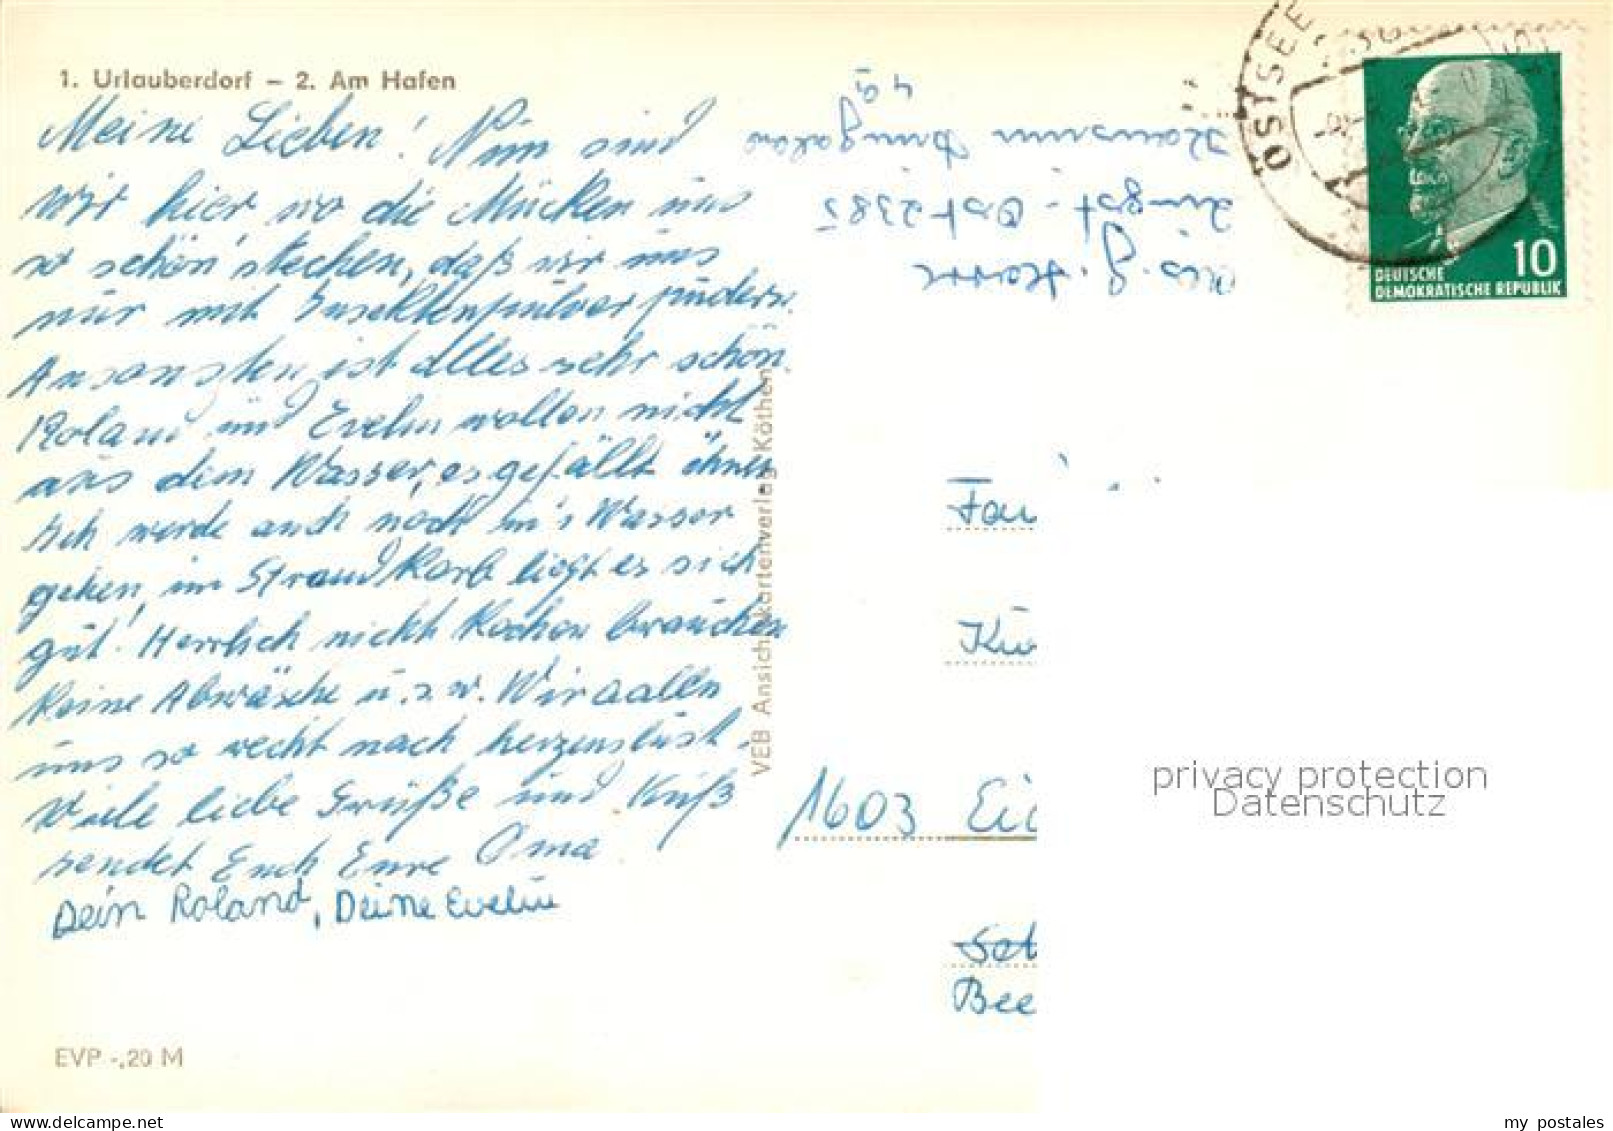 1. Urlauberdorf – 2. Am Hafen
Meine Lieben! Nun sind
wir hier, wo die Mücken uns
so schön stechen, daß wir uns
nur mit Insektenpulver pudern.
Ansonsten ist alles sehr schön.
Roland und Evelin wollen nicht
aus dem Wasser, es gefällt ihnen
Ich werde auch noch in's Wasser
gehen, im Strandkorb liegt es sich
gut. Herrlich nicht kochen brauchen
keine Abwäsche u.s.w. Wir aalen
uns so recht nach herzenslust.
Viele liebe Grüße und Kuß
sendet Euch Eure Oma
Dein Roland, Deine Evelin
EVP -,20 M
VEB Ansichtskartenverlag Köthen
Zingst-Ost 2385
49
OSTSEE
10
DEUTSCHE
DEMOKRATISCHE REPUBLIK
Fa
1603 Ei
Bee
privacy protection
Datenschutz
my postales